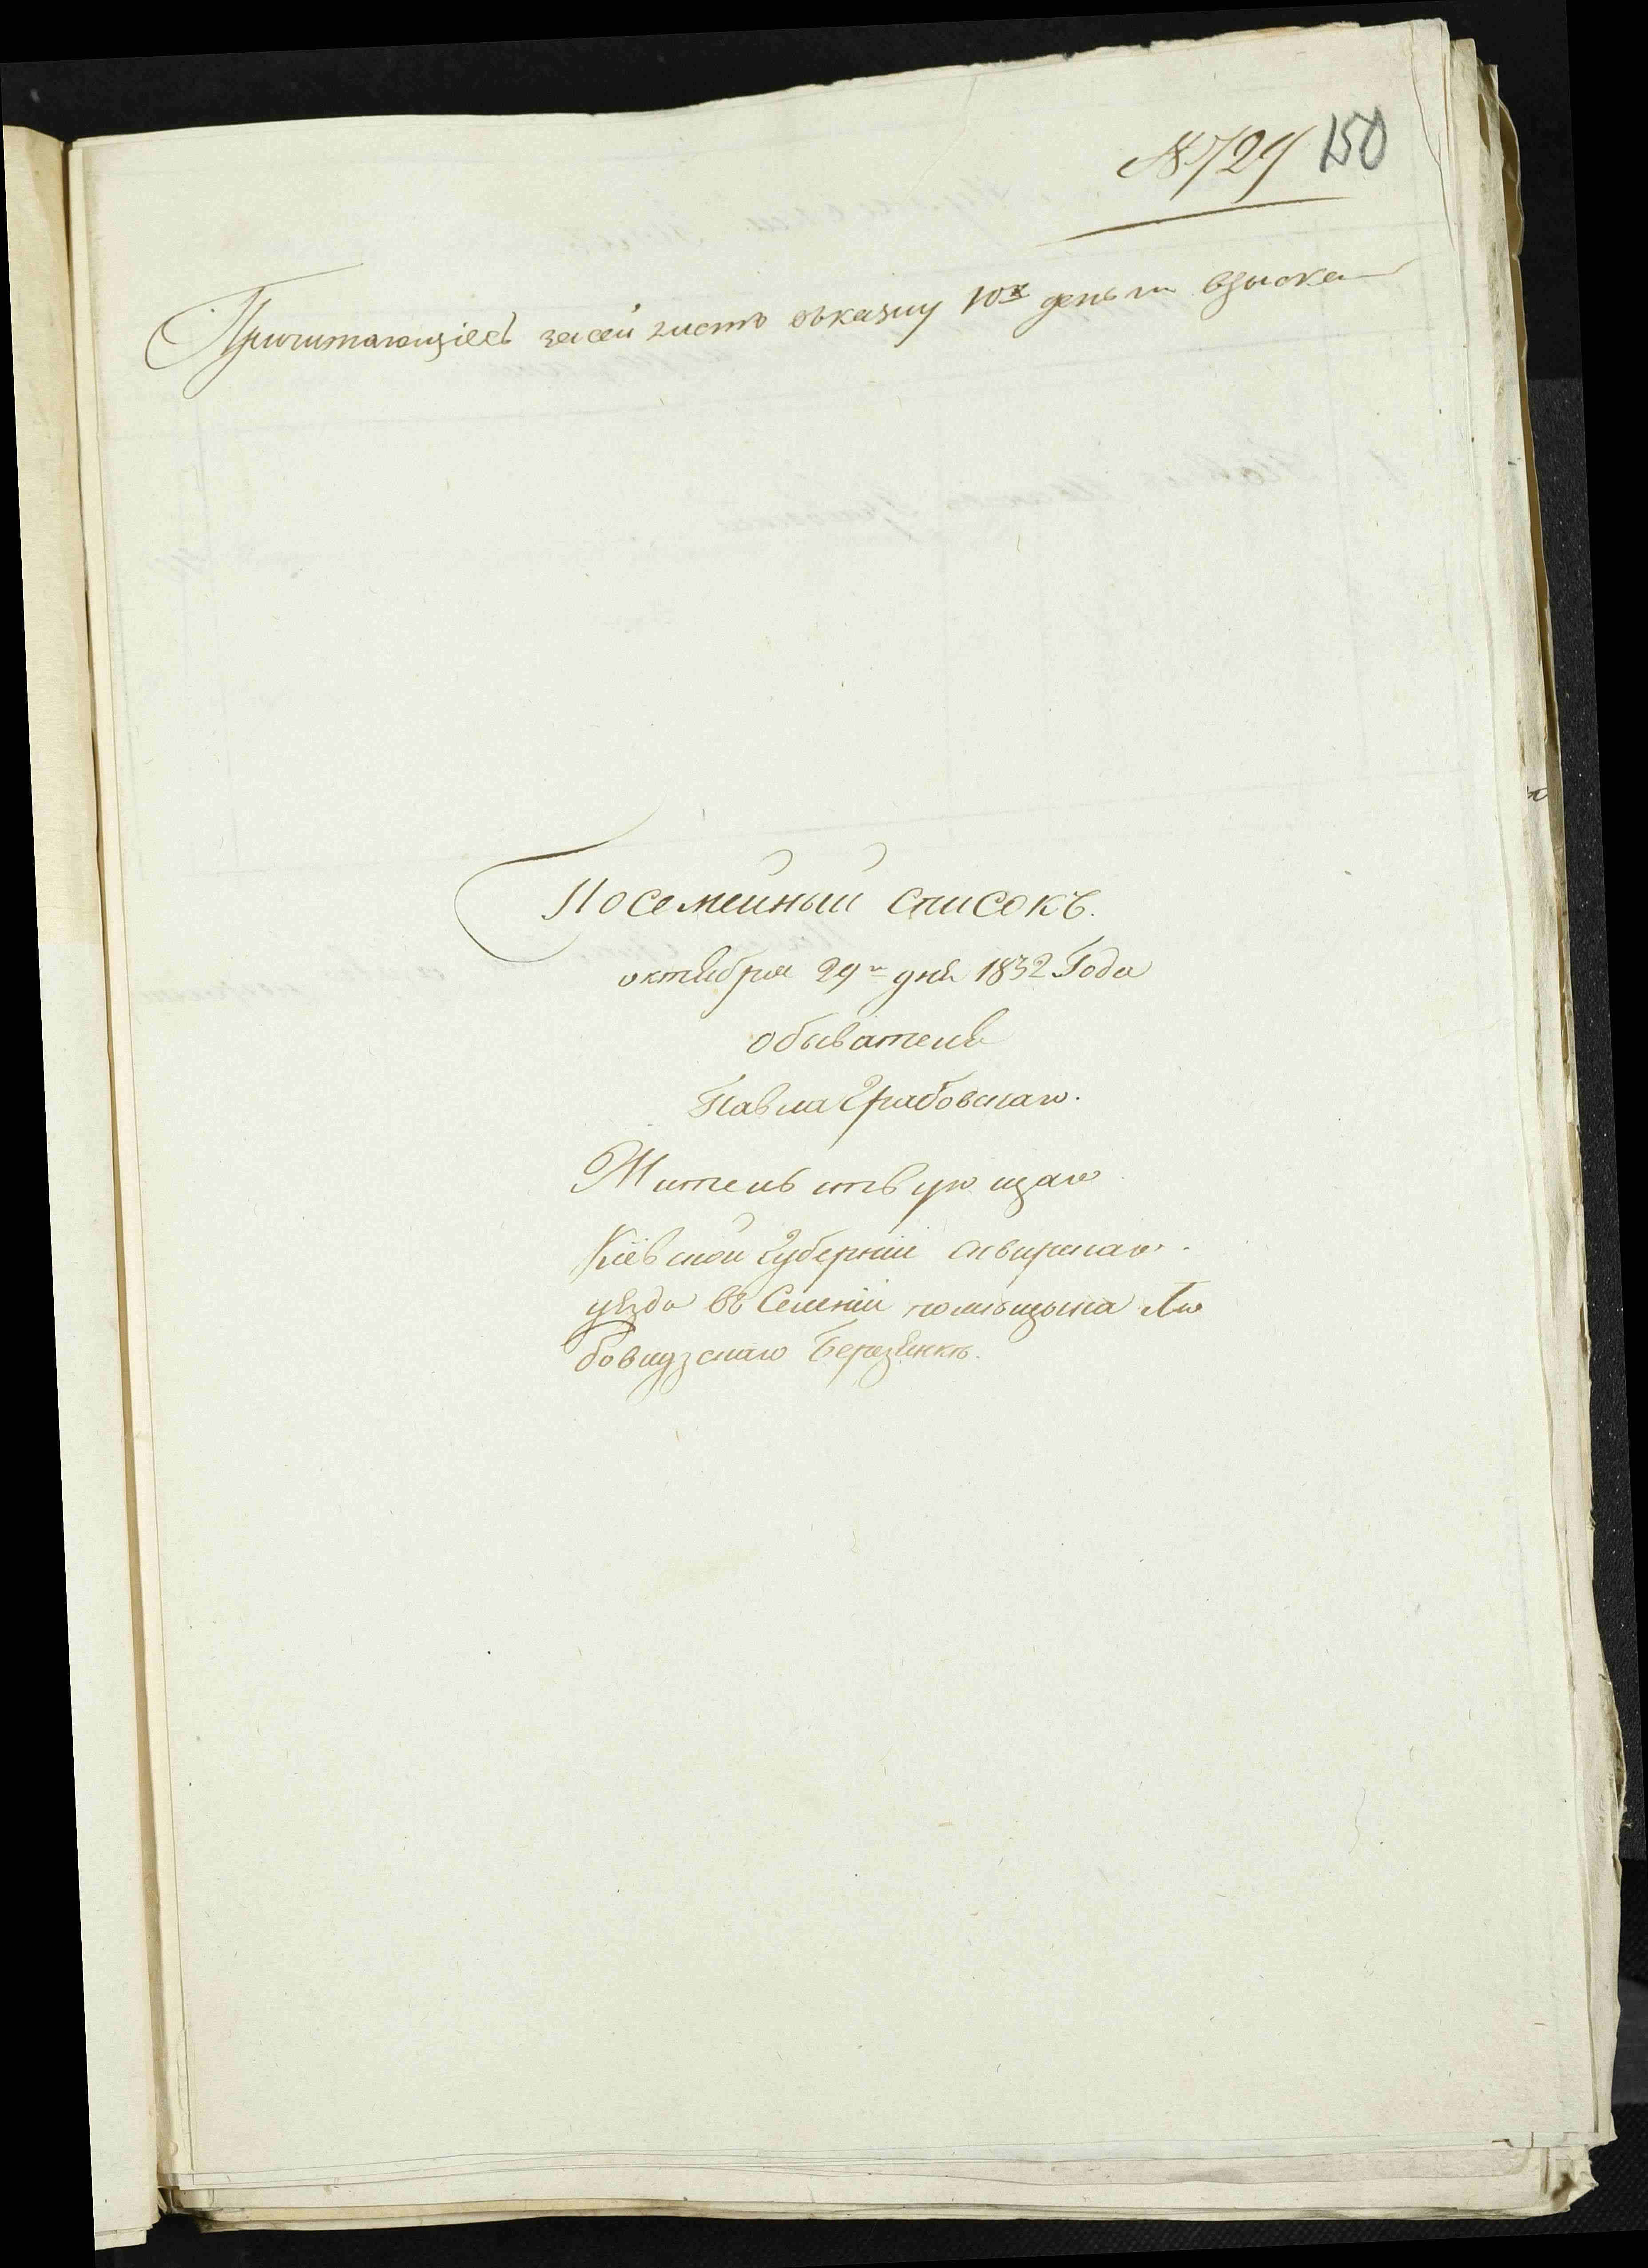 № 729 150
Причитающіесь за сей листъ въ казну 10ᵏ деньги взыска
Посемейный списокъ.
октября 29ᵍᵒ дня 1832 Года
обывателя
Павла Грабовскаго.
Жительствующаго
Кіевской Губерніи Сквирскаго
уѣзда въ Селеніи помѣщика Лю
бовидзскаго Березянкѣ.